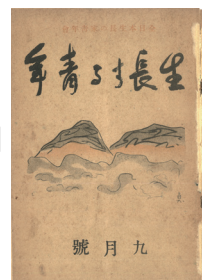 生長する青年
九月號